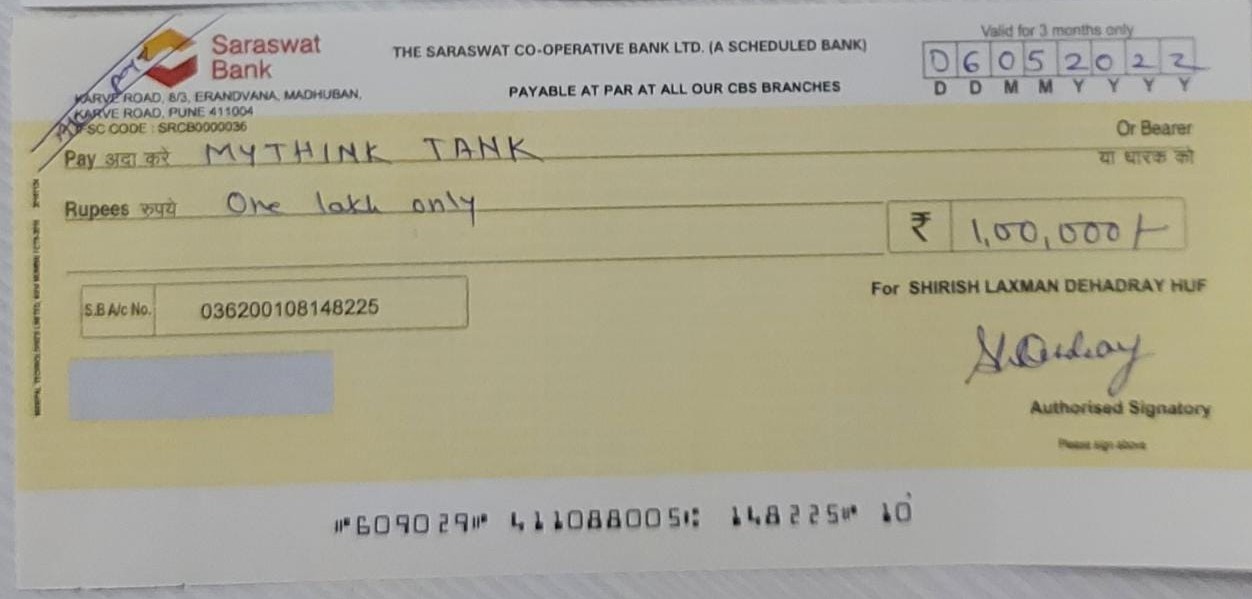 A/c pay
Saraswat
Bank
KARVE ROAD, 8/3, ERANDVANA, MADHUBAN,
KARVE ROAD, PUNE 411004
IFSC CODE : SRCB0000036
THE SARASWAT CO-OPERATIVE BANK LTD. (A SCHEDULED BANK)
PAYABLE AT PAR AT ALL OUR CBS BRANCHES
Valid for 3 months only
06052022
D D M M Y Y Y Y
Pay अदा करे MYTHINK TANK
Or Bearer
या धारक को
Rupees रुपये One lakh only
₹ 1,00,000/-
For SHIRISH LAXMAN DEHADRAY HUF
S.B A/c No. 036200108148225
Authorised Signatory
Please sign above
⑈609029⑈ 411088005⑆ 148225⑈ 10